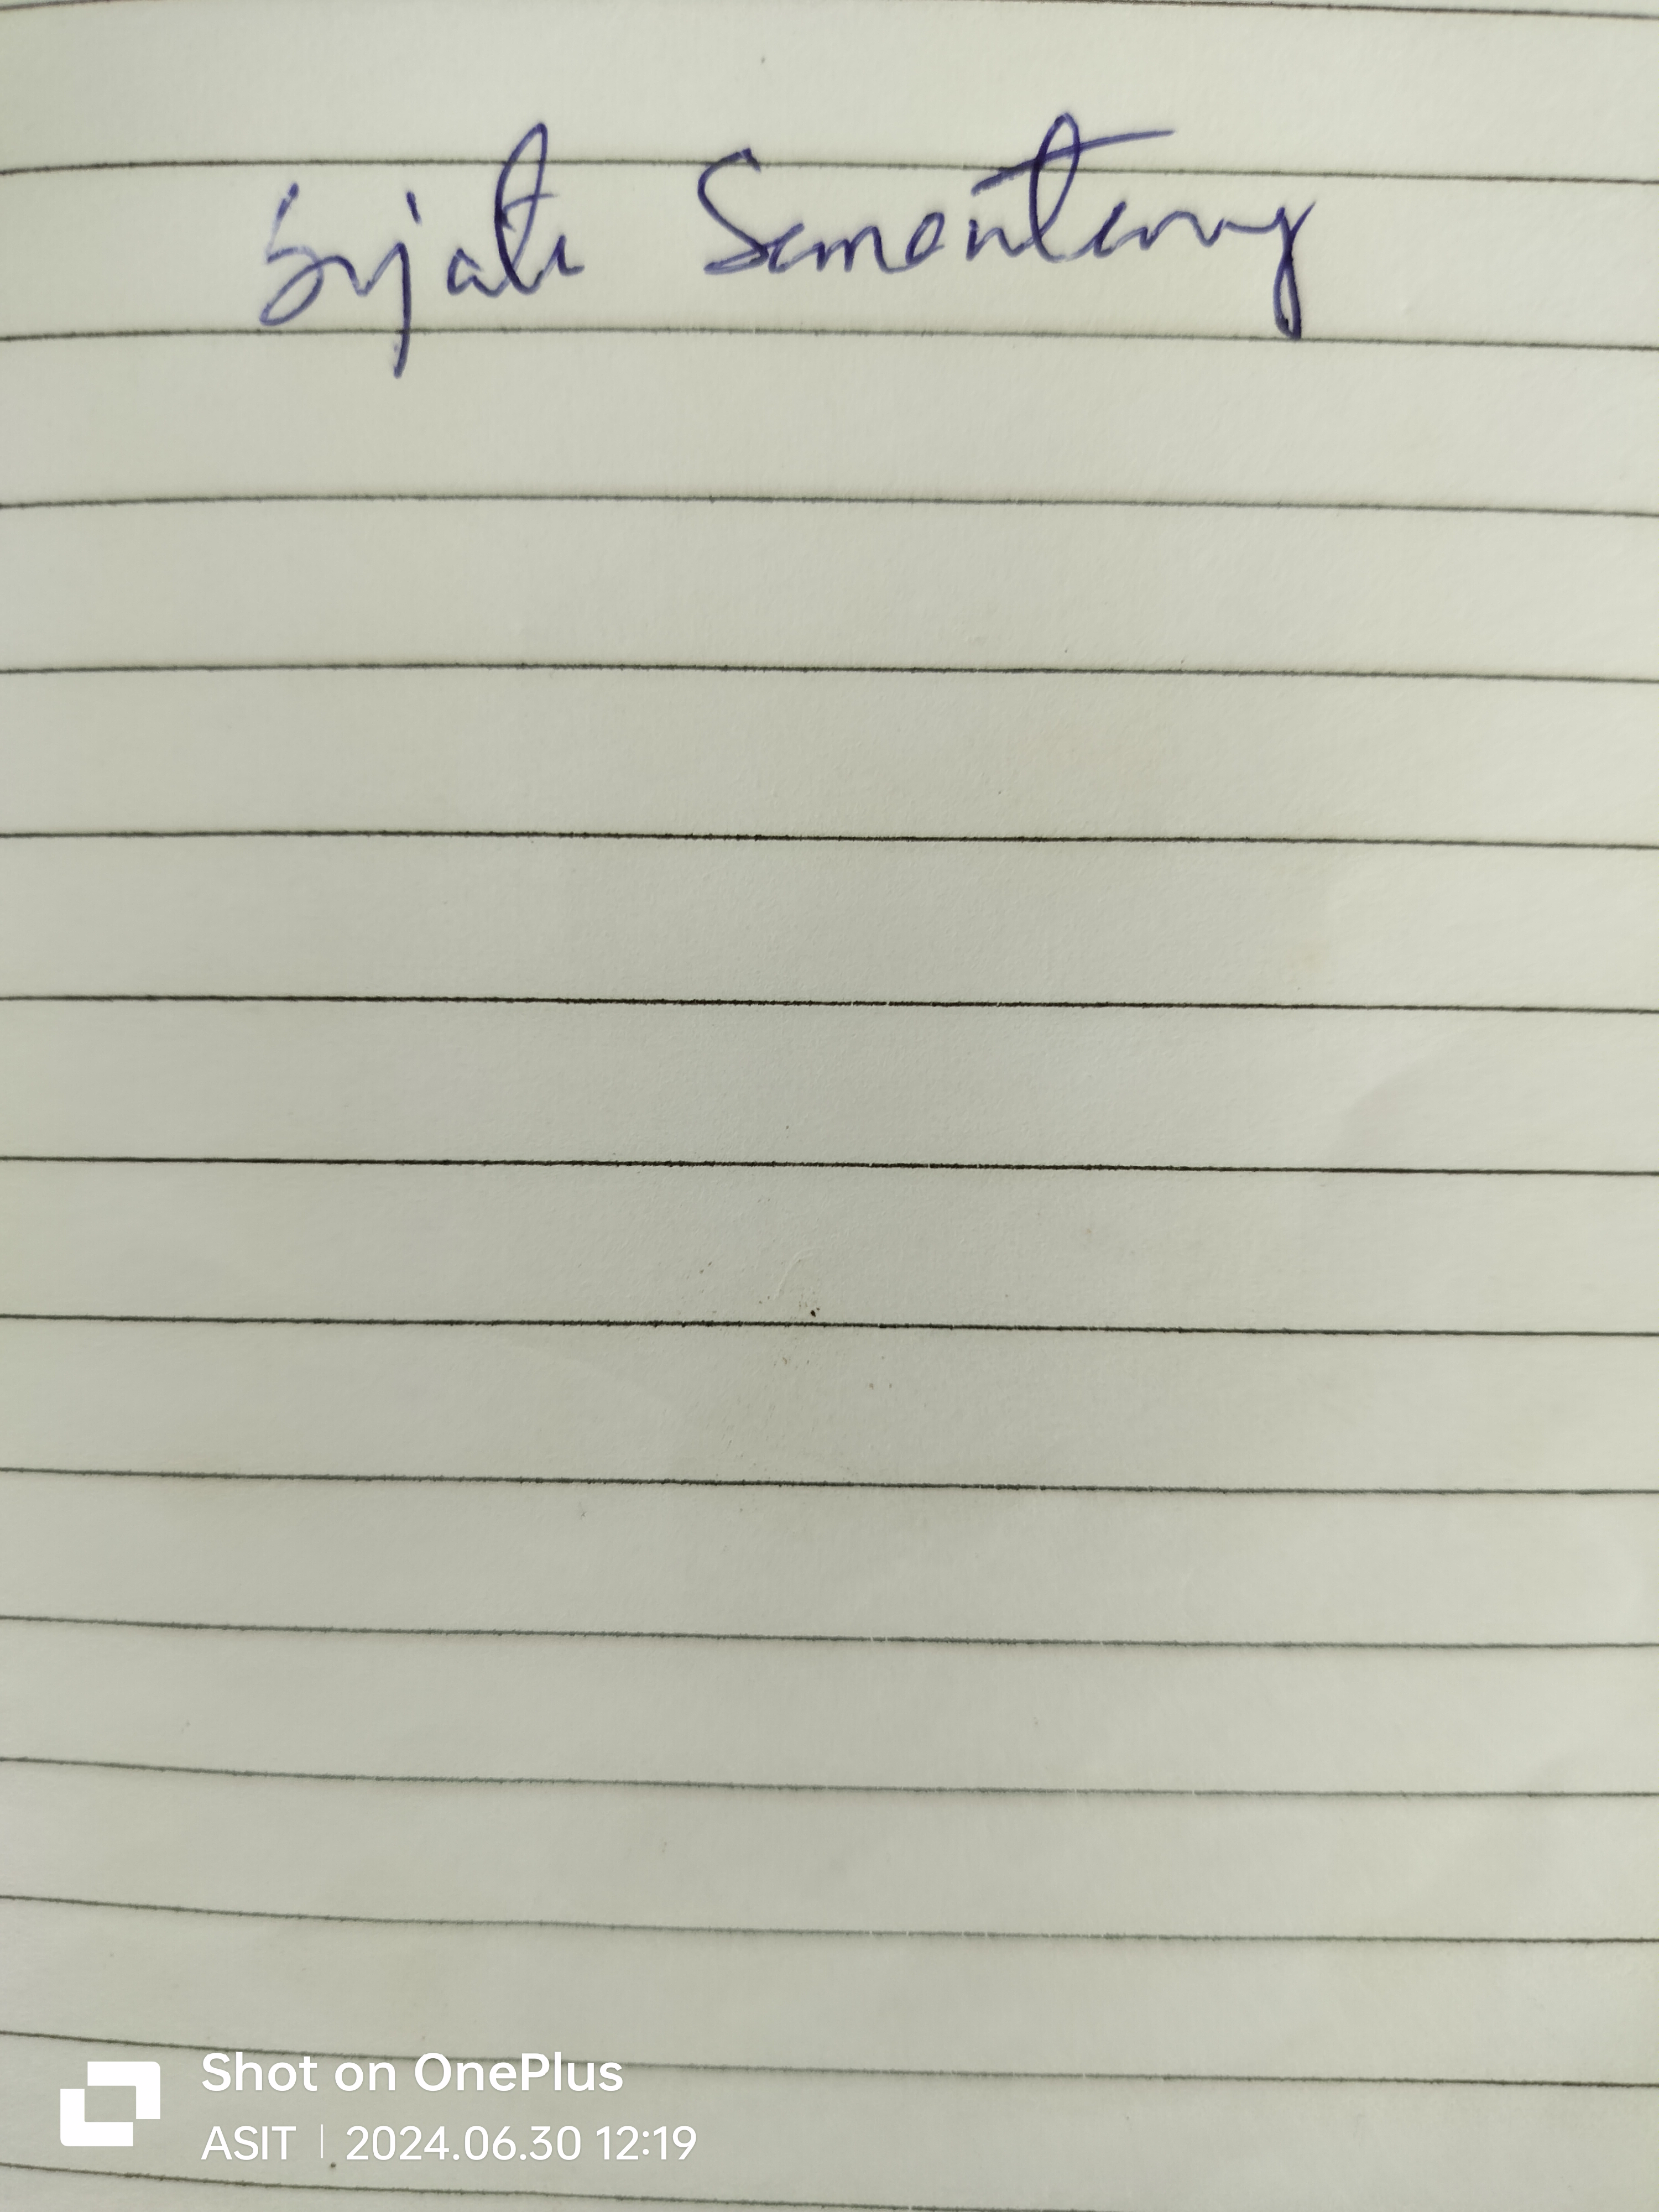 Sujata Samantaray
Shot on OnePlus
ASIT | 2024.06.30 12:19